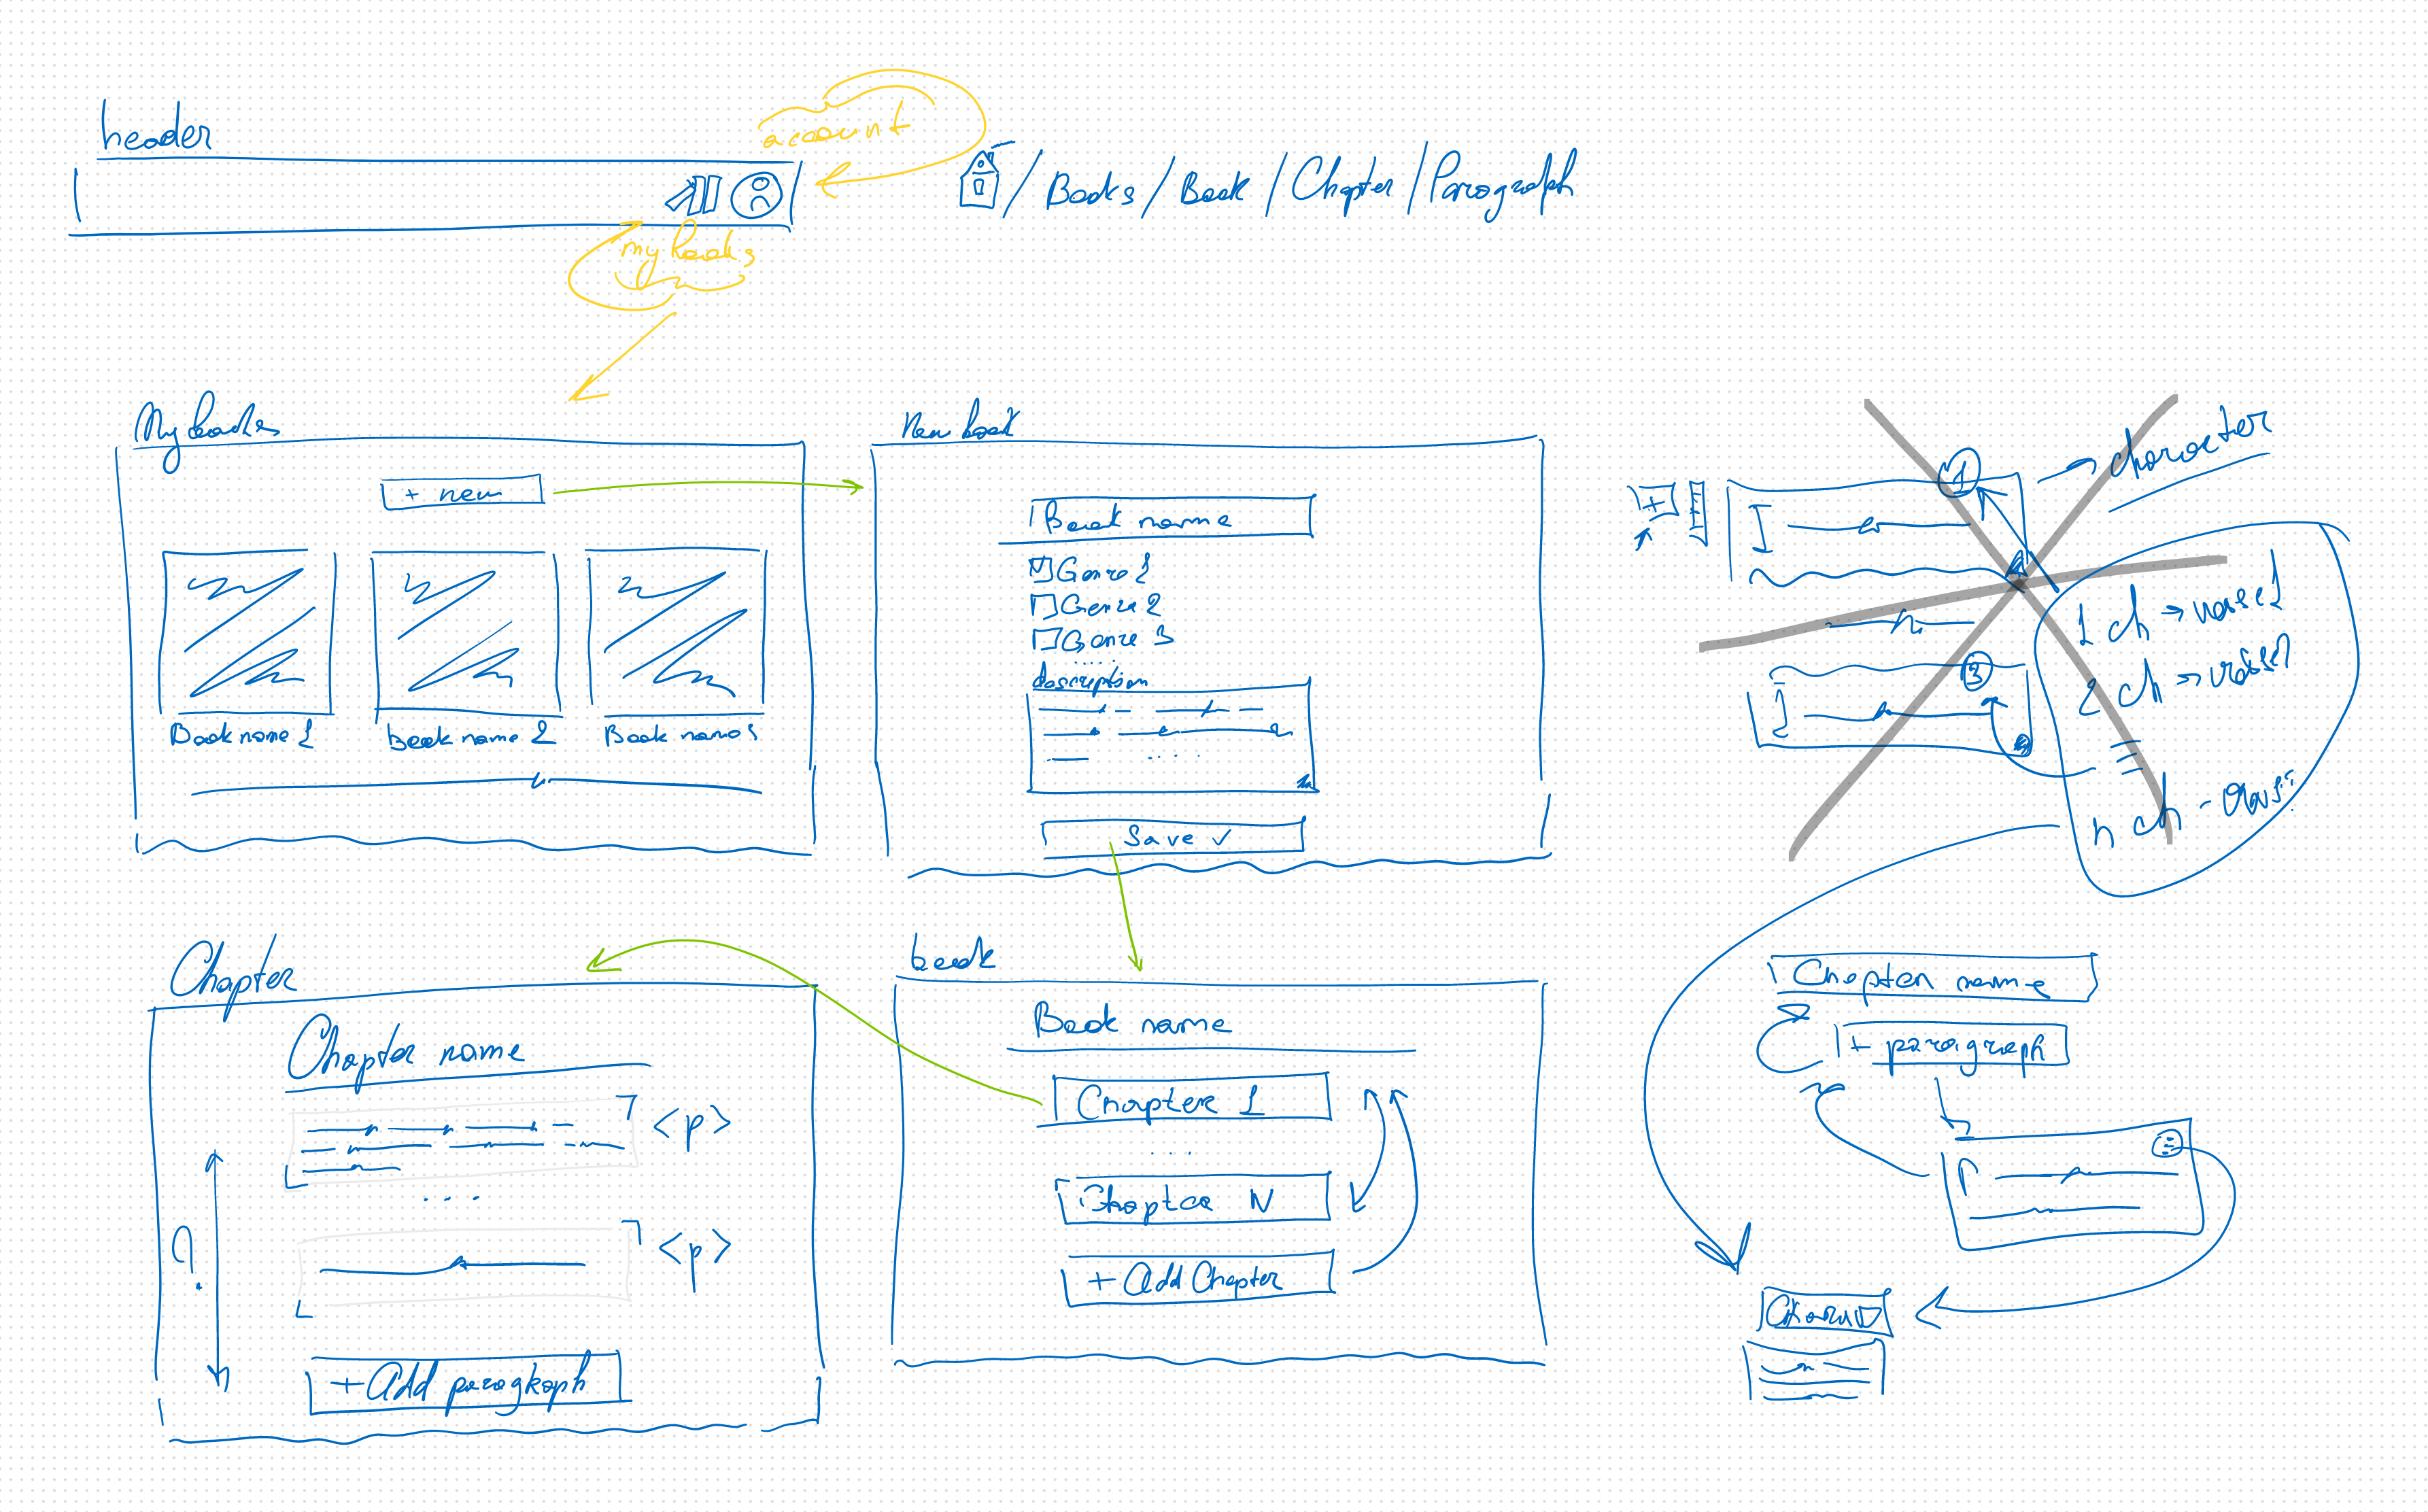 header
account
/ Books / Book / Chapter / Paragraph
my books
My books
+ new
Book name 1
book name 2
Book name
New book
Book name
Genre 1
Genre 2
Genre 3
.....
description
....
Save ✓
1
→ character
+
1 ch →
2 ch →
3
n ch -
Chapter
Chapter name
<p>
....
<p>
?
+ Add paragraph
book
Book name
Chapter 1
...
Chapter N
+ Add Chapter
Chapter name
+ paragraph